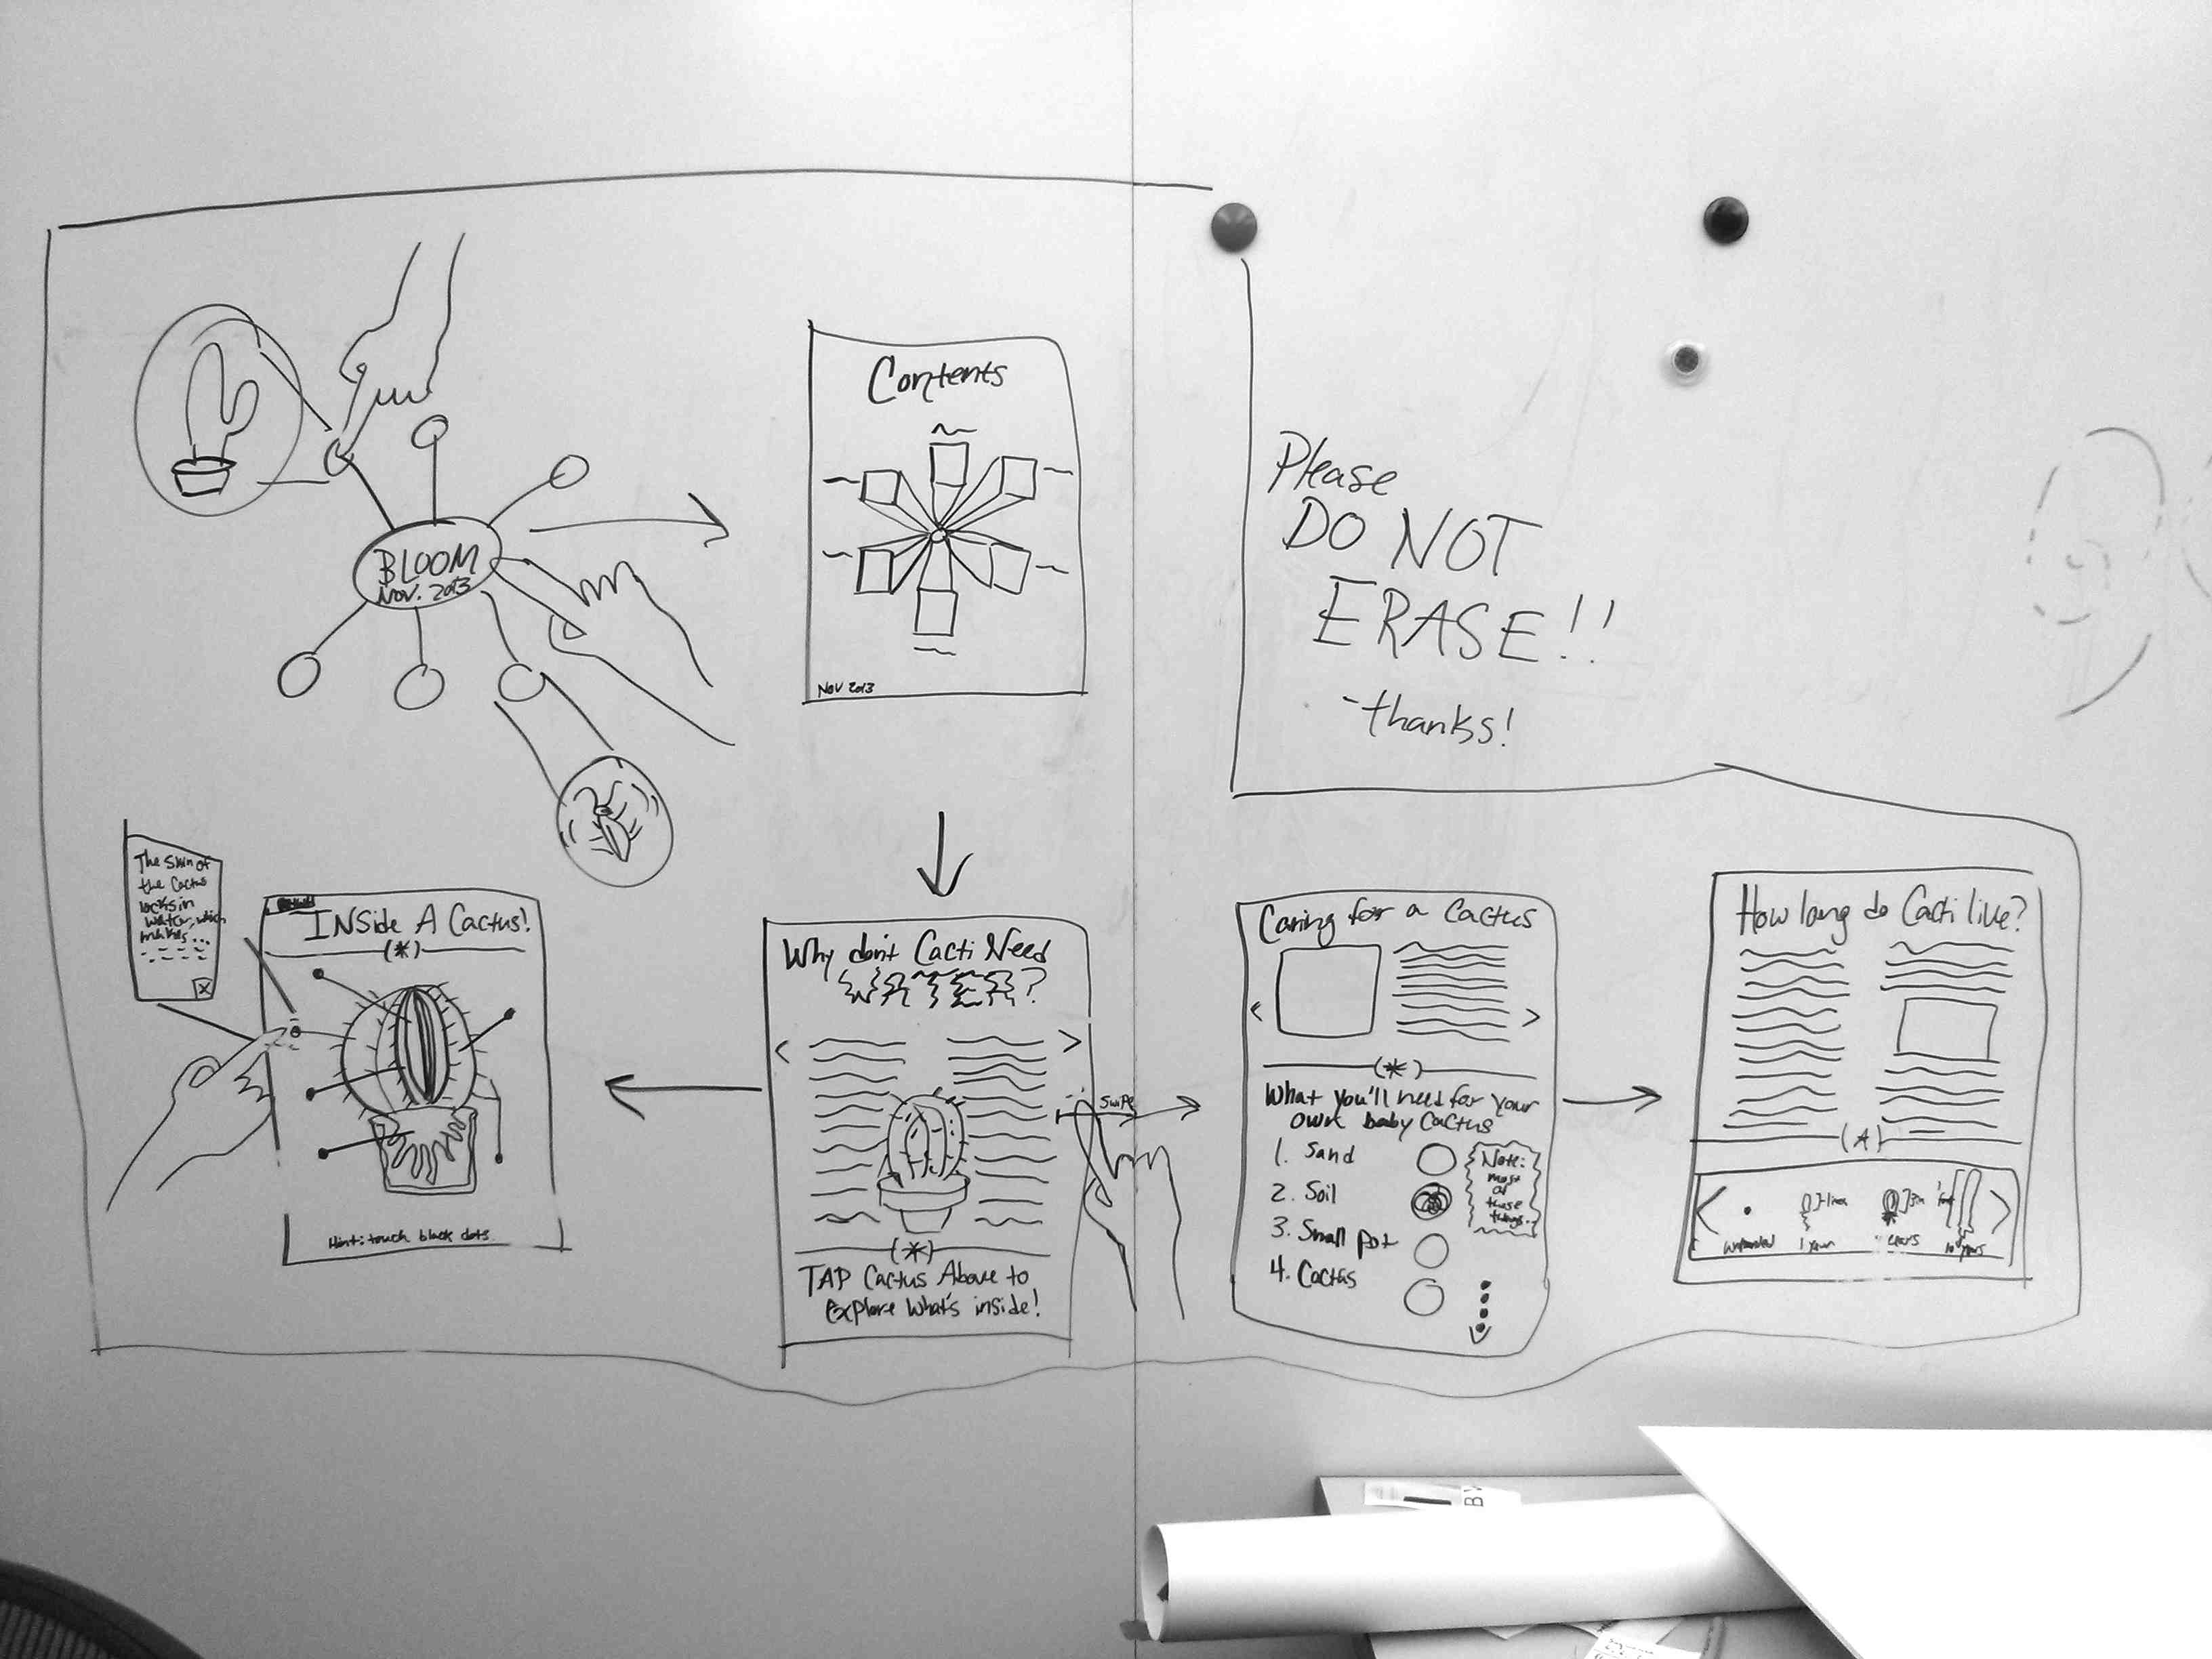 BLOOM
NOV. 2013
Contents
NOV 2013
Please
DO NOT
ERASE!!
-thanks!
The skin of
the cactus
locks in
water, which
makes...
X
INSide A Cactus!
(*)
Hint: touch black dots
Why don't Cacti Need
WATER?
< >
(*)
TAP Cactus Above to
Explore What's inside!
swipe
Caring for a Cactus
< >
(*)
What you'll need for your
own baby Cactus
1. Sand
2. Soil
3. Small pot
4. Cactus
Note:
most
of
these
things...
How long do Cacti live?
1 year
10 years
B